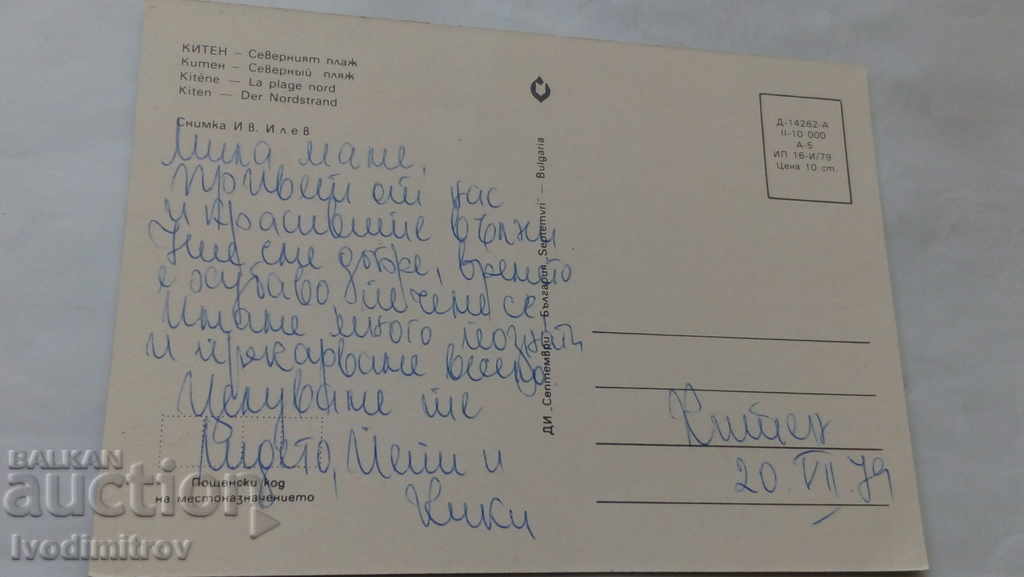 КИТЕН – Северният плаж
Китен – Северный пляж
Kitène – La plage nord
Kiten – Der Nordstrand
Снимка Ив. Илев
Мила маме,
привет от нас
и красивите вълни.
Ние сме добре, времето
е хубаво, печеме се
Имаме много познати
и прекарваме весело
Целуваме те
Пепи и
Кики
Пощенски код
на местоназначението
ДИ „Септември“ – България „Septemvri“ – Bulgaria
Д-14262-А
II-10 000
А-5
ИП 16-И/79
Цена 10 ст.
Китен
20.VII.79
BALKAN
auction
Ivodimitrov